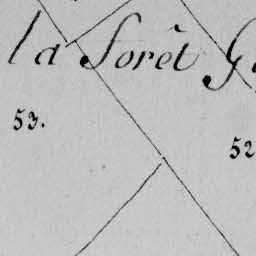 la forêt
53.
52